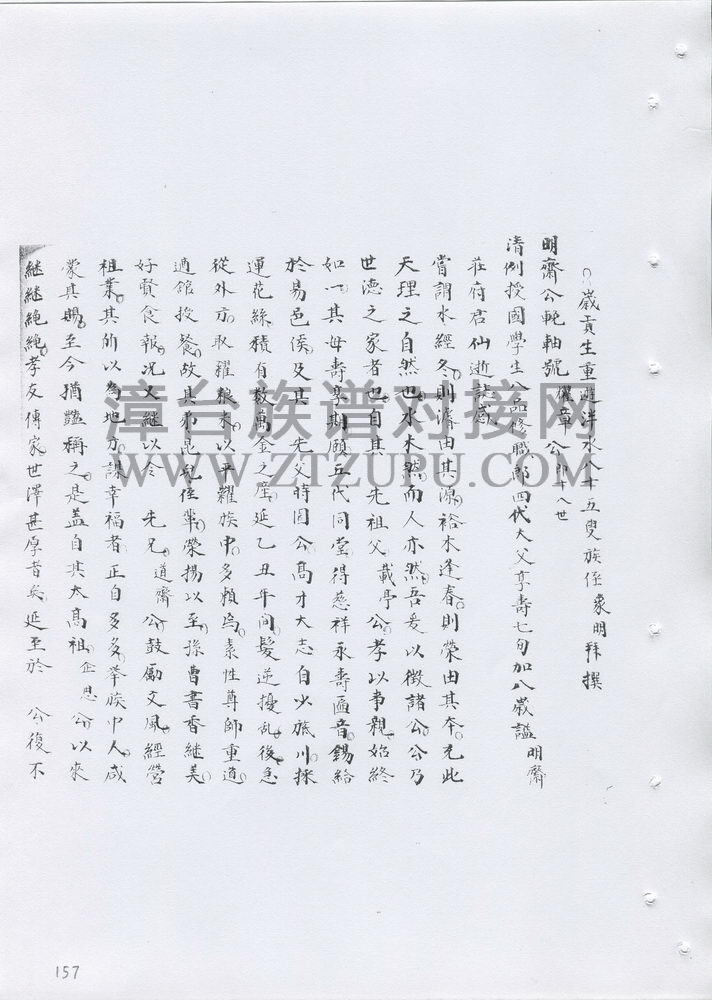 歲貢生重遊泮水八十五叟族侄彖明拜撰
明齋公軛軸號 櫂章公即十八世
清例授國學生八品修職郎四代大父享壽七旬加八歲謚 明齋
莊府君仙逝誌感
嘗謂水經冬則濬由其源裕木逢春則榮由其本充此
天理之自然也水木然而人亦然吾爰以徵諸公公乃
世德之家者也自其 先祖父 載亭公孝以事親始終
如一其母壽享期頤五代同堂得慈祥永壽匾音錫給
於易邑侯及其先父時園公高才大志自少旅川採
運花絲積有數萬金之產延乙丑年間髮逆擾亂後急
從外方取糴粮米以平糶族中多賴焉素性尊師重道
適館授餐故其弟昆兒侄輩榮揚以至孫曹書香継美
好賢食報況又継以令 先兄道齋 公鼓勵文風經營
祖業其所以為地方謀幸福者正自多多舉族中人咸
蒙其賜至今猶豔稱之是蓋自其太高祖企思公以來
継継繩繩孝友傳家世澤甚厚者矣延至於 公復不
漳台族谱对接网
WWW.ZTZUPU.COM
157